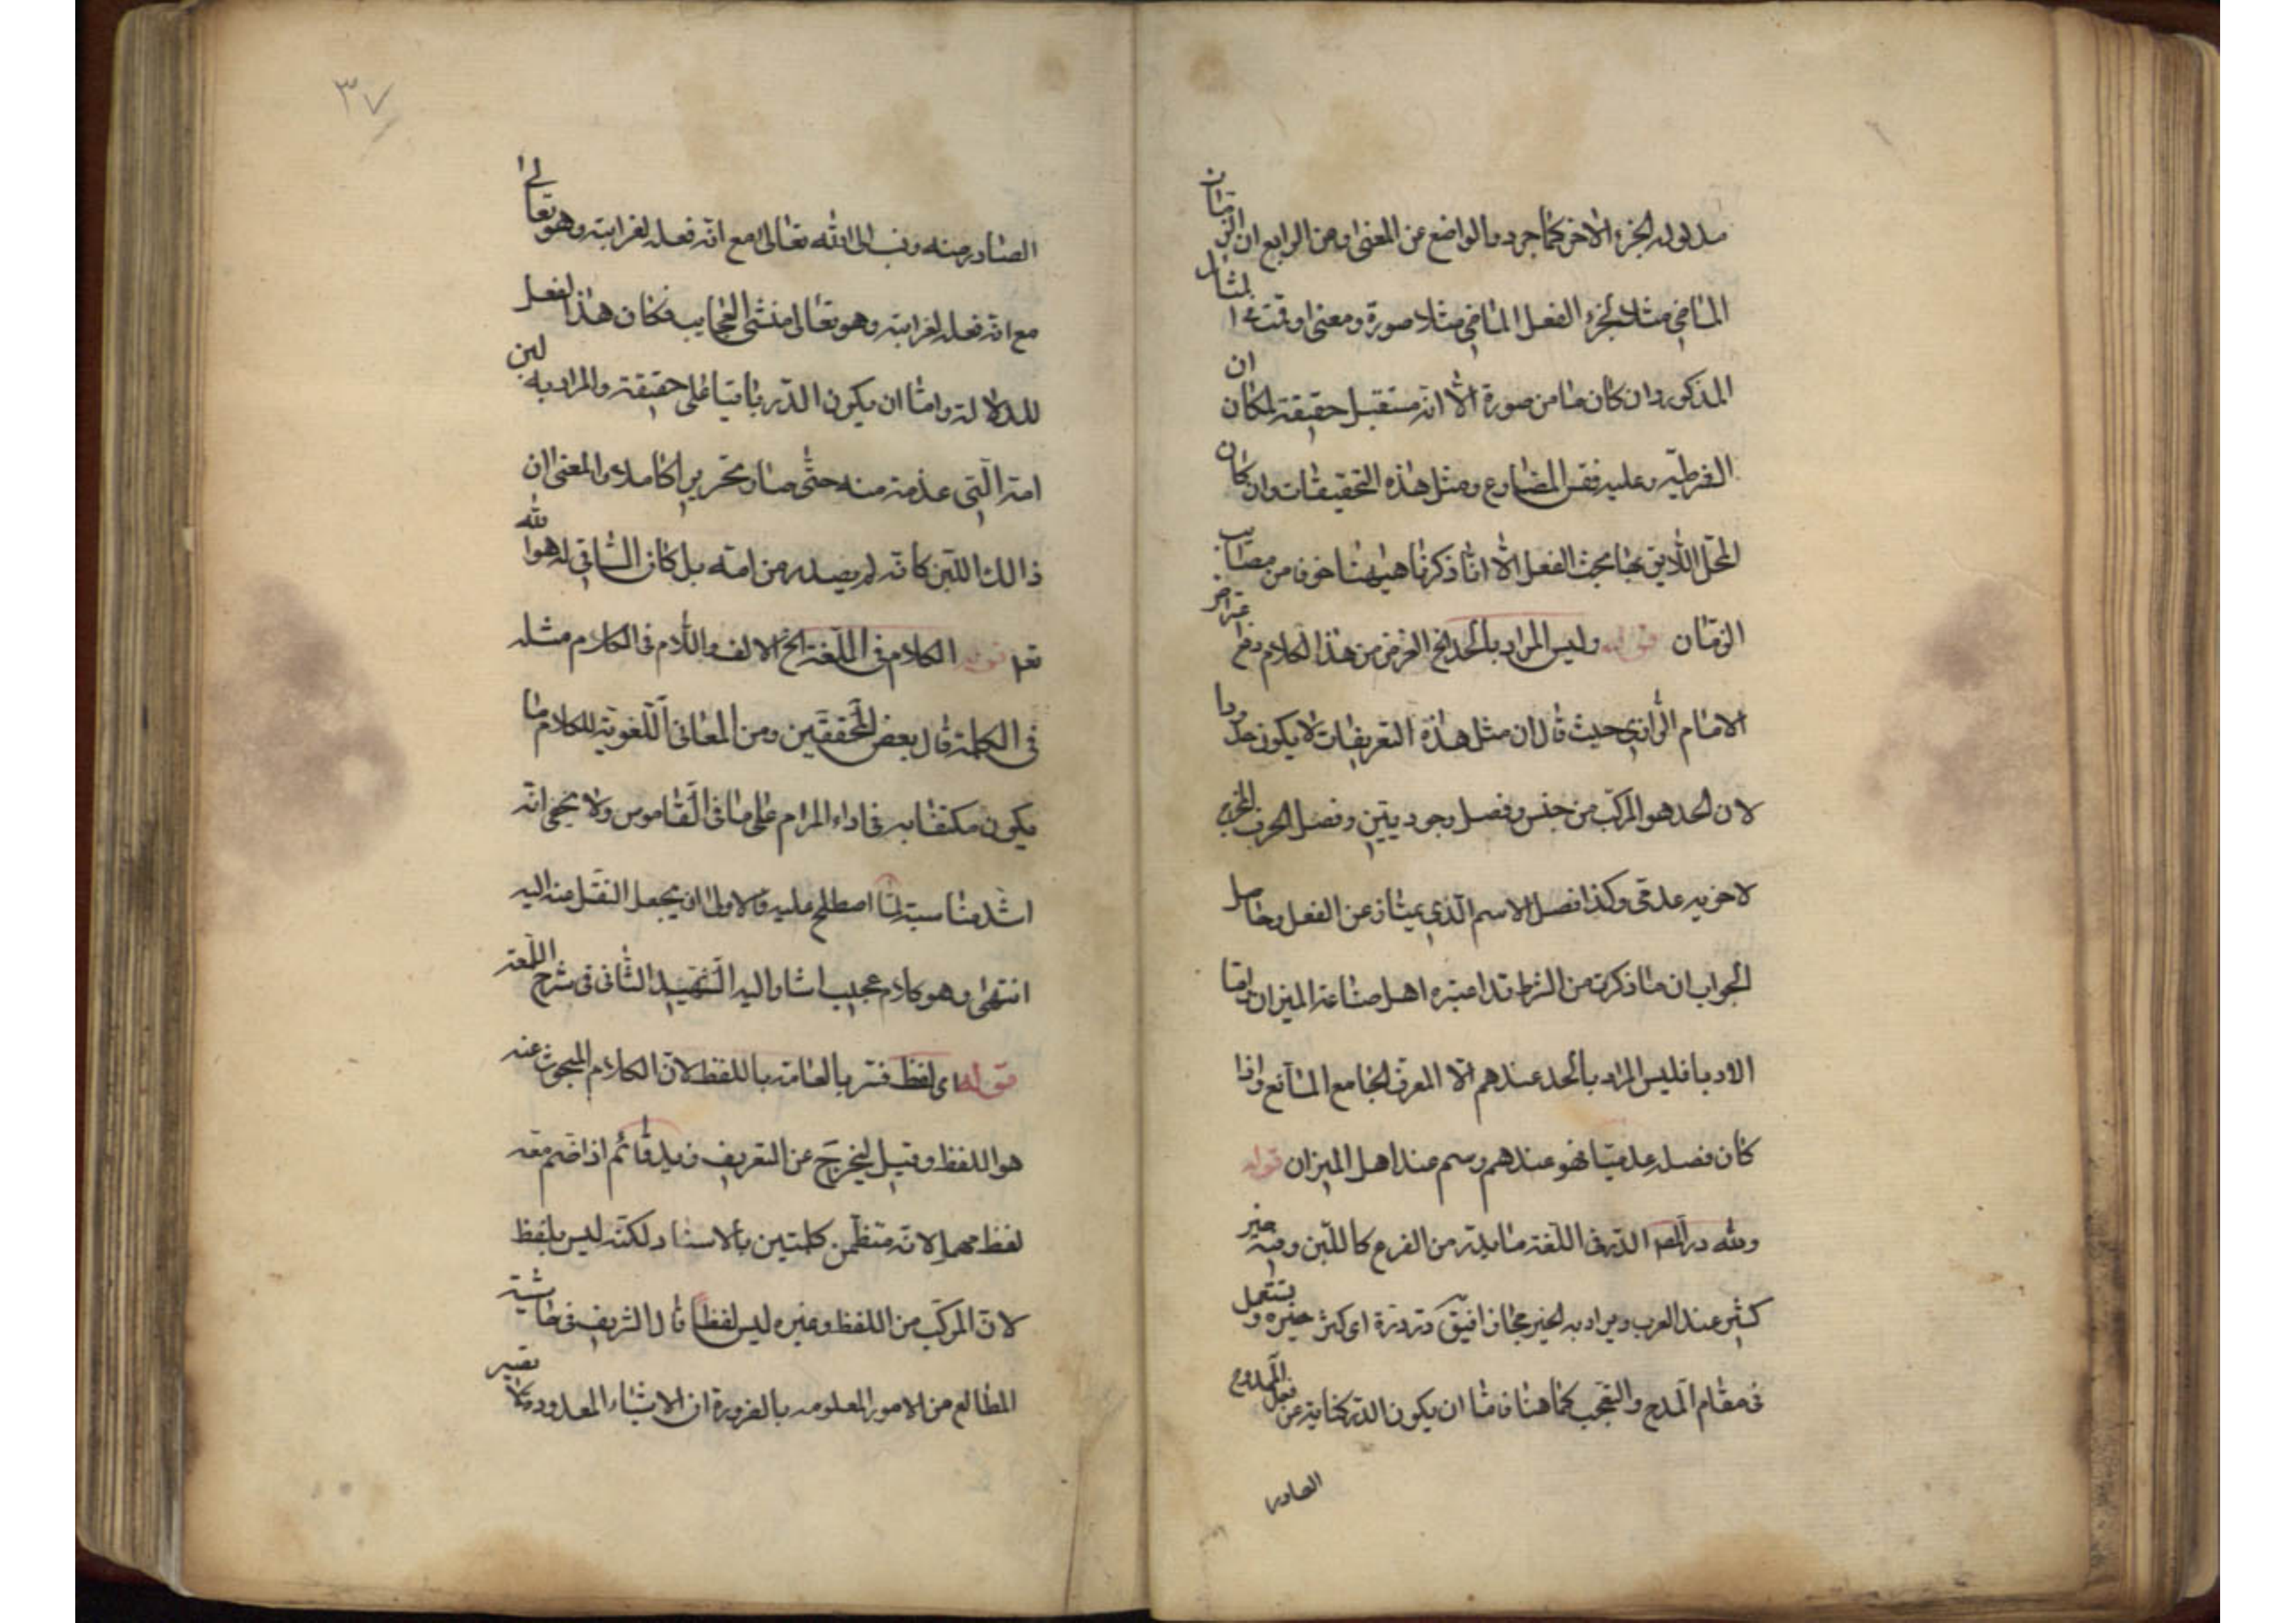 مدلوله الجزء الاخر كما جرده الواضع عن المعنى ومن الرابع ان الزمان
الماضي مثلا لجزء الفعل الماضي مثلا صورة ومعنى وقت المثال
المذكور وان كان ماض صورة الا انه مستقبل حقيقة لمكان ان
الشرطية وعليه فقس المضارع ومثل هذه التحقيقات وان كان
المحل اللايق بها بحث الفعل الا انا ذكرنا هيهنا خوف من مصايب
الزمان قوله وليس المراد بالحد الخ الغرض من هذا الكلام دفع
الامام الرازي حيث قال ان مثل هذه التعريفات لا يكون حدودا
لان الحد هو المركب من جنس وفصل وجوديتين وفصل الحرف
لاخويه عدمي وكذا فصل الاسم الذي يمتاز عن الفعل وحاصل
الجواب ان ما ذكرت من الشرط قد اعتبره اهل صناعة الميزان واما
الادبا فليس المراد بالحد عندهم الا المعرف الجامع المانع واذا
كان فصله عدميا فهو عندهم وسم عند اهل الميزان قوله
ولله در المص الدر في اللغة ما يدر من الضرع كاللبن وفيه خير
كثير عند العرب ويراد به الخير مجازا فيق در دره اى كثر خيره ويستعمل
في مقام المدح والتعجب كما هنا فاما ان يكون الدر كناية عن فعل الممدوح
الصادر
٣٧
الصادر منه ونسب الى الله تعالى مع انه فعله لغرابته وهو تعالى
مع انه فعله لغرابته وهو تعالى منشى العجايب فكان هذا لفعل
للدلالة واما ان يكون الدر باقيا على حقيقته والمراد به لبن
امه التي عذمته منه حتى صار نحريرا كاملا والمعنى ان
ذالك اللبن كانه لم يصدر من امه بل كان الساقى له هو الله
تعا قوله الكلام في اللغة الخ الالف واللام في الكلام مثله
في الكلمة قال بعض المحققين ومن المعانى اللغوية للكلام ما
يكون مكتفا به في اداء المرام على ما في القاموس ولا يخفى انه
اشد مناسبة لما اصطلح عليه فالاولى ان يجعل النقل منه اليه
انتهى وهو كلام عجيب اشار اليه الشهيد الثاني في شرح اللمعة
قوله اى لفظ فسر بالعامة باللفظ لان الكلام المبحوث عنه
هو اللفظ وقيل ليخرج عن التعريف زيد قائم اذا ضم معه
لفظ مهمل لانه متظمن كلمتين بالاسناد لكنه ليس بلفظ
لان المركب من اللفظ وغيره ليس لفظا قال الشريف في حاشية
المطالع من الامور المعلومه بالضرورة ان الاشياء المعدوده